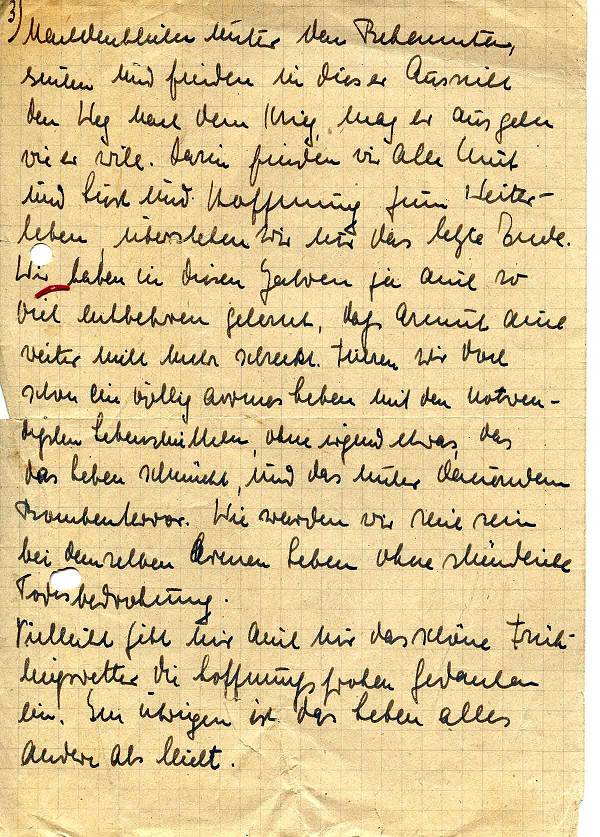 3)
Nachdenklichen unter den Bekannten,
suchen und finden in dieser Aussicht
den Weg nach dem Krieg, mag er ausgehn
wie er will. Darin finden wir alle Mut
und Lust und Hoffnung zum Weiter-
leben, überstehen wir nur das letzte Ende.
Wir haben in diesen Jahren ja auch so
viel entbehren gelernt, dass Armut auch
weiter nicht mehr schreckt. Führen wir doch
schon ein völlig armes Leben mit den notwen-
digsten Lebensmitteln, ohne irgend etwas, das
das Leben schmückt, und das unter dauerndem
Bombenterror. Wie werden wir reich sein
bei demselben armen Leben ohne stündliche
Todesbedrohung.
Vielleicht gibt mir auch nur das schöne Früh-
lingswetter die hoffnungsfrohen Gedanken
ein. Im übrigen ist das Leben alles
andere als leicht.